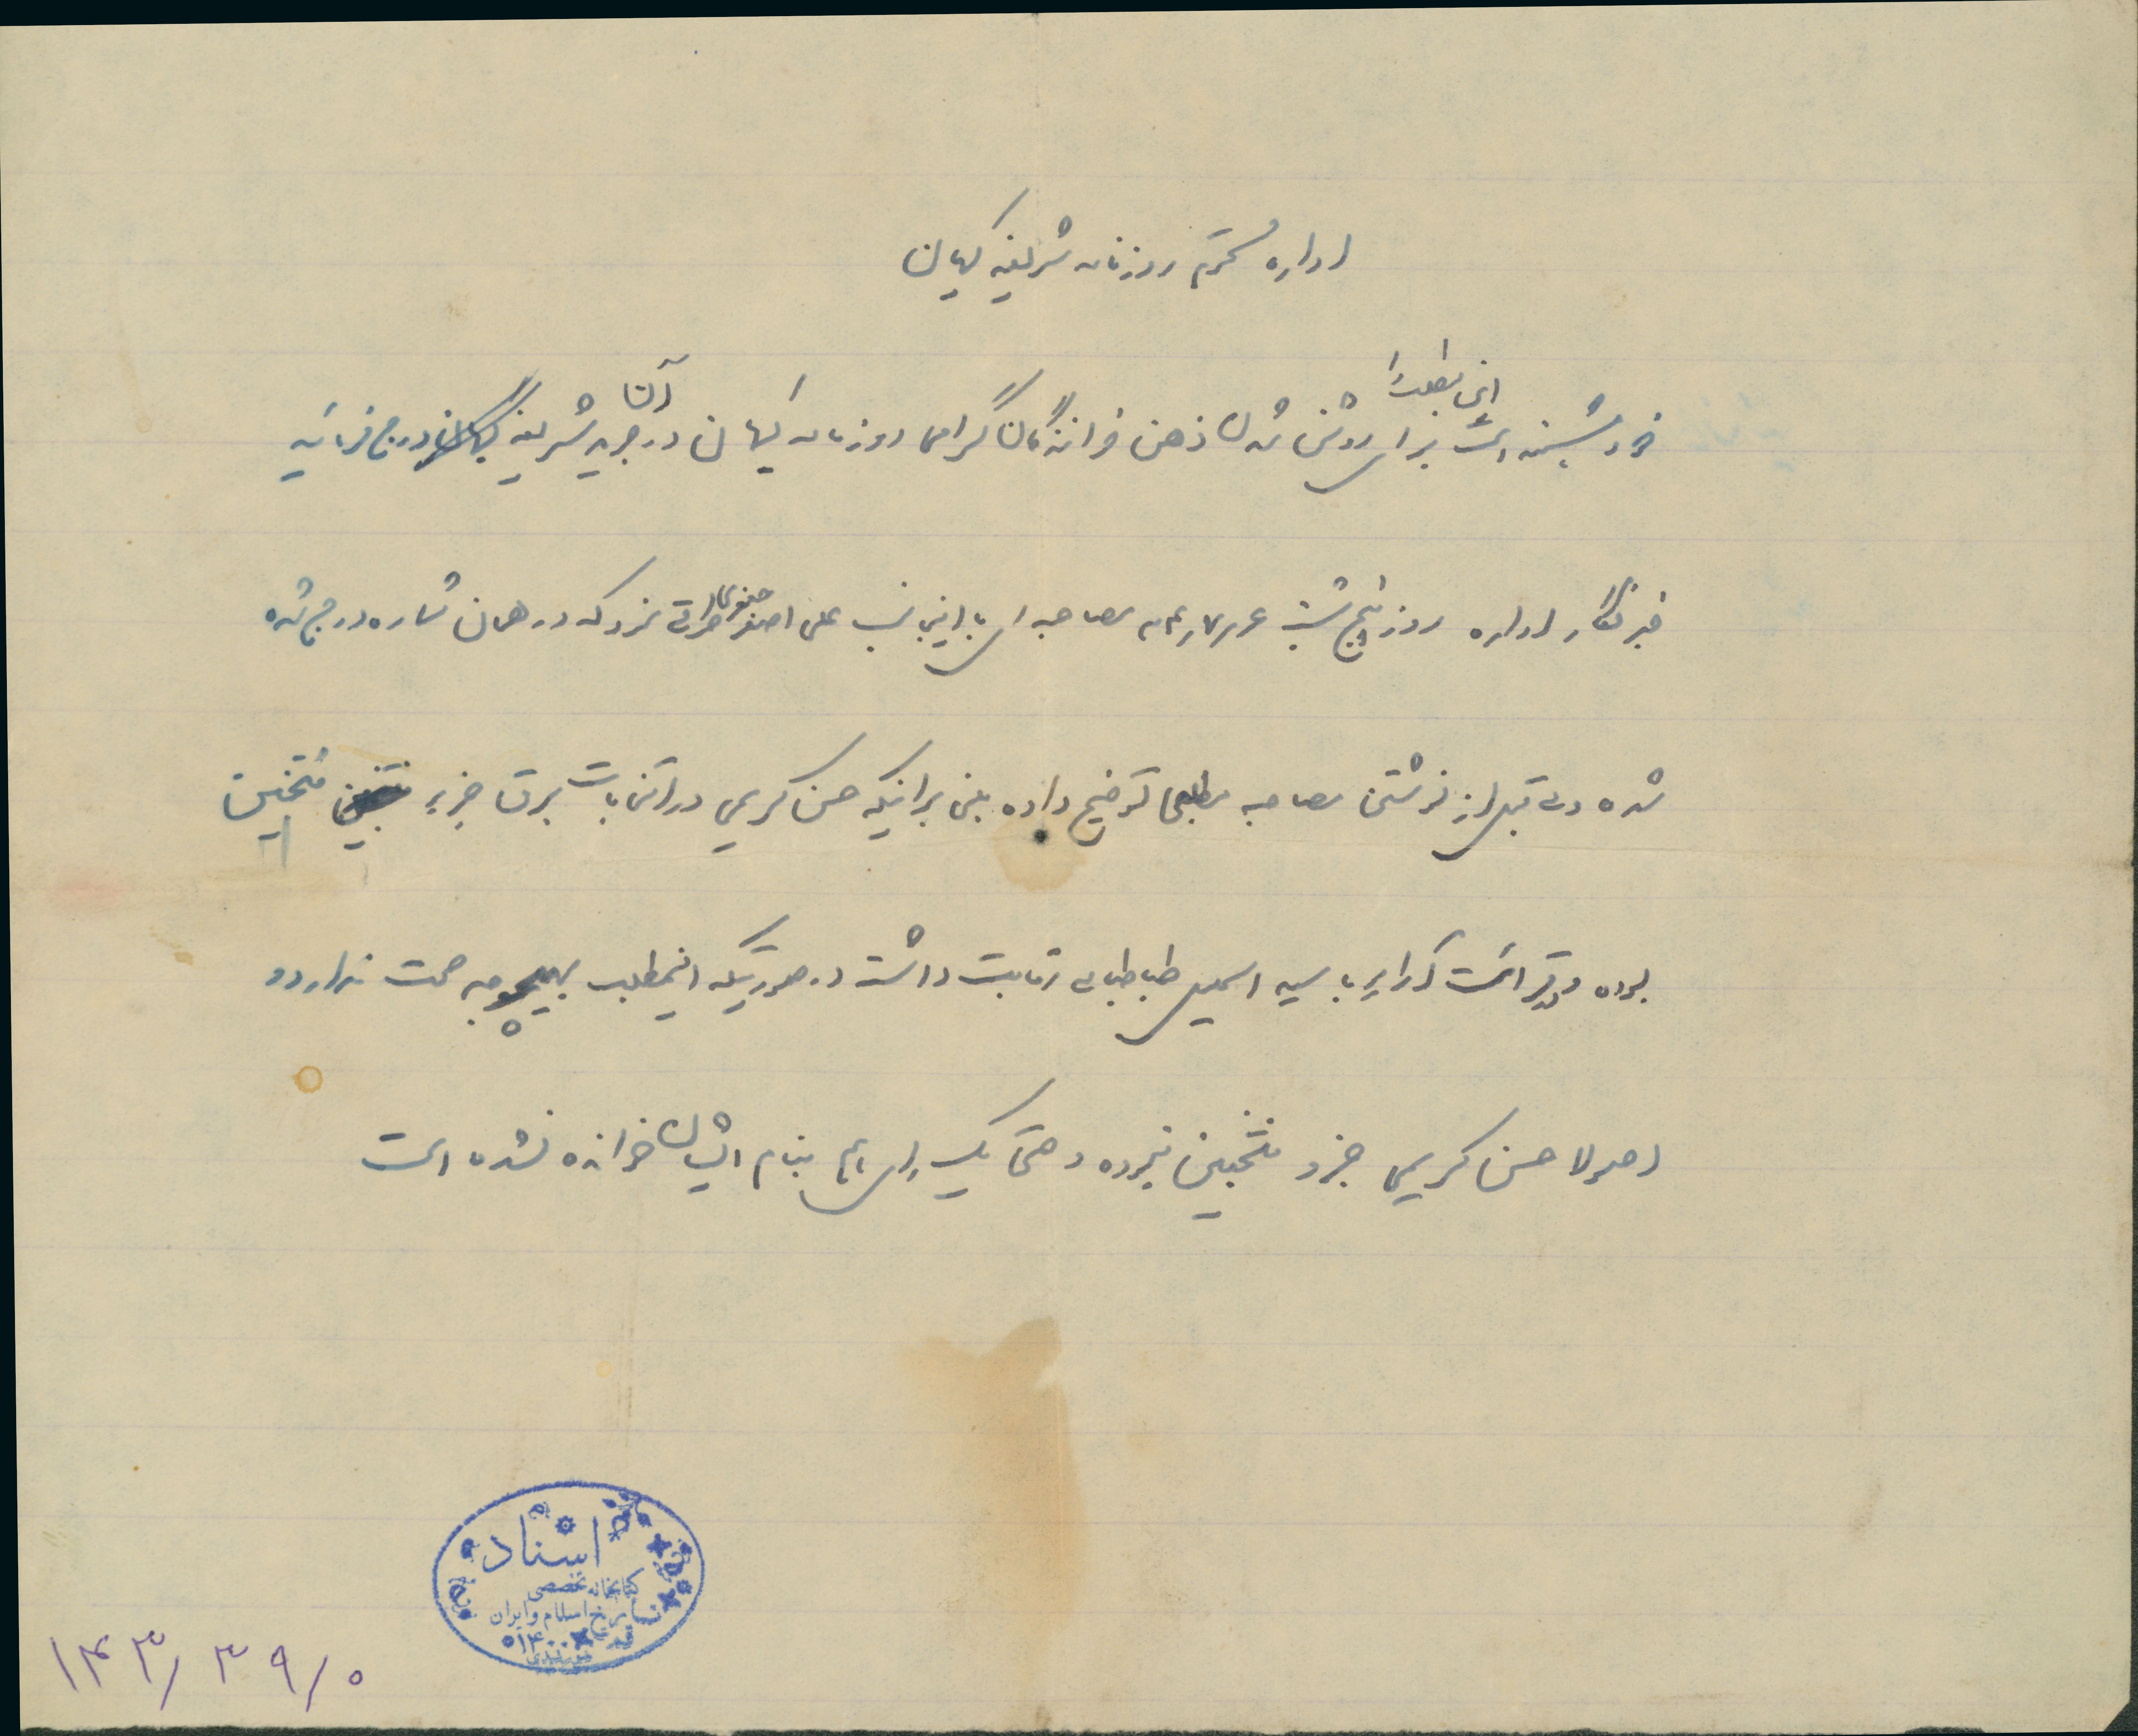 اداره محترم روزنامه شریفه کیهان
خواهشمند است این مطلب را برای روشن شدن ذهن خوانندگان گرامی روزنامه کیهان در جریده شریفه آنان درج فرمائید
خبرنگار اداره روز پنج شنبه مصاحبه ای با اینجانب علی اصغر صفوی نمود که در همان شماره درج شده
شده ولی قبل از نوشتن مصاحبه مطلبی توضیح داده مبنی بر اینکه حسن کریمی در انتخابات برق جزو منتخبین
بوده و در قرائت آراء با سید اسمعیل طباطبائی رقابت داشت در صورتیکه اینمطلب بهیچوجه صحت ندارد و
اصولا حسن کریمی جزو منتخبین نبوده و حتی یک رای هم بنام ایشان خوانده نشده است
اسناد
کتابخانه تخصصی
تاریخ اسلام و ایران
قم
۱۴۳/۳۹/۰